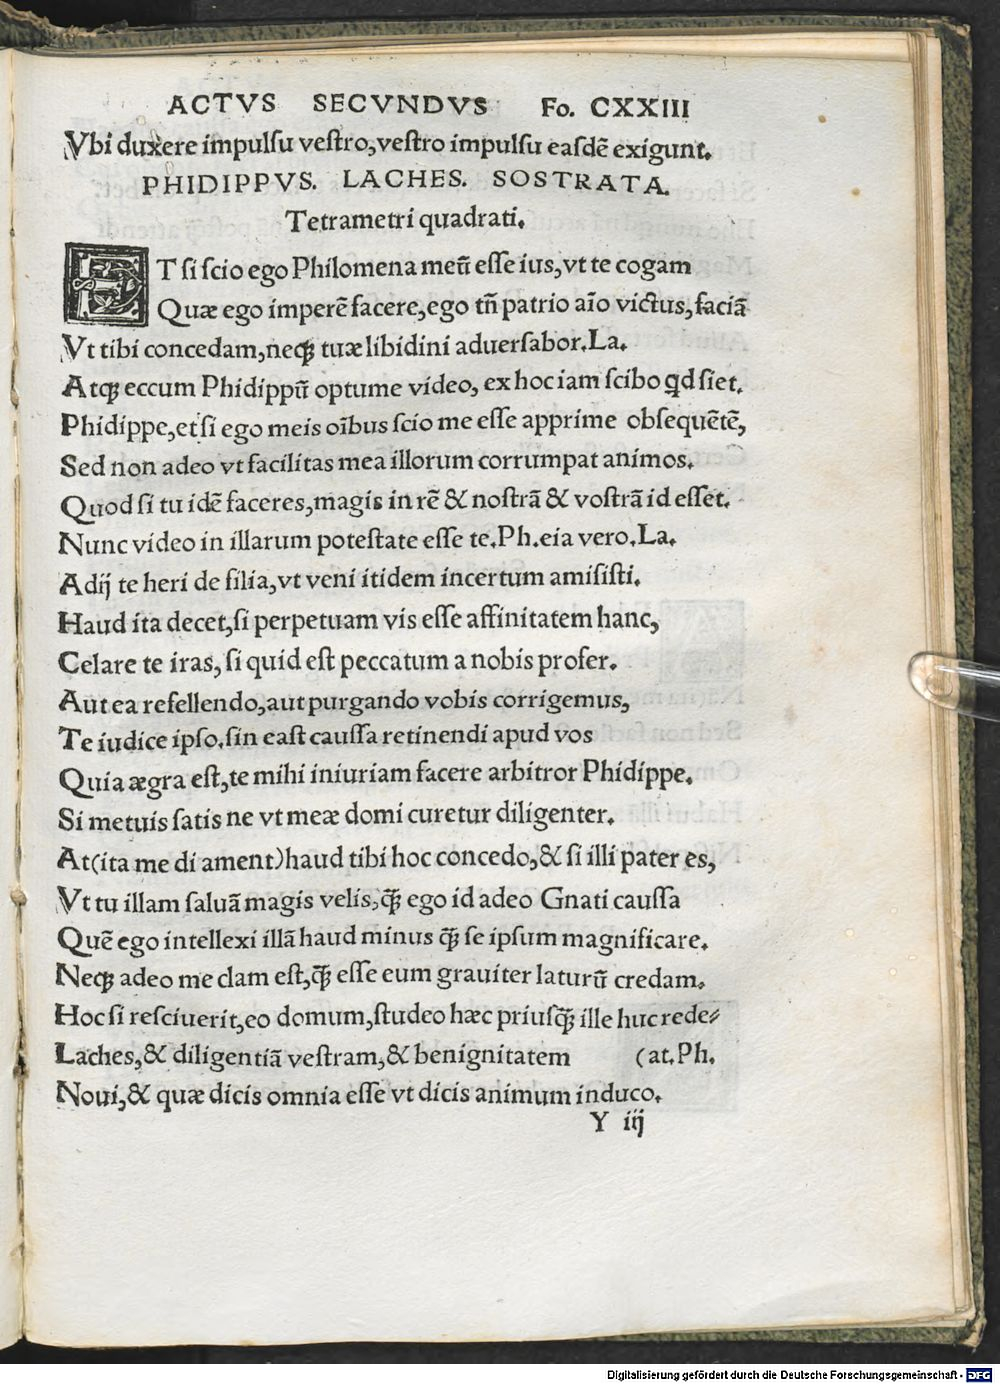 ACTVS SECVNDVS Fo. CXXIII
Vbi duxere impulſu veſtro, veſtro impulſu eaſdē exigunt.
PHIDIPPVS. LACHES. SOSTRATA.
Tetrametri quadrati.
ET ſi ſcio ego Philomena meū eſſe ius, vt te cogam
Quæ ego imperē facere, ego tn̄ patrio aīo victus, faciā
Vt tibi concedam, neqꝫ tuæ libidini aduerſabor. La.
Atqꝫ eccum Phidippū optume video, ex hoc iam ſcibo qd ſiet.
Phidippe, et ſi ego meis oībus ſcio me eſſe apprime obſequētē,
Sed non adeo vt facilitas mea illorum corrumpat animos.
Quod ſi tu idē faceres, magis in rē & noſtrā & voſtrā id eſſet.
Nunc video in illarum poteſtate eſſe te. Ph. eia vero. La.
Adij te heri de filia, vt veni itidem incertum amiſiſti.
Haud ita decet, ſi perpetuam vis eſſe affinitatem hanc,
Celare te iras, ſi quid eſt peccatum a nobis profer.
Aut ea refellendo, aut purgando vobis corrigemus,
Te iudice ipſo. ſin eaſt cauſſa retinendi apud vos
Quia ægra eſt, te mihi iniuriam facere arbitror Phidippe.
Si metuis ſatis ne vt meæ domi curetur diligenter.
At (ita me di ament) haud tibi hoc concedo, & ſi illi pater es,
Vt tu illam ſaluā magis velis, qꝫ̄ ego id adeo Gnati cauſſa
Quē ego intellexi illā haud minus qꝫ̄ ſe ipſum magnificare.
Neqꝫ adeo me clam eſt, qꝫ̄ eſſe eum grauiter laturū credam.
Hoc ſi reſciuerit, eo domum, ſtudeo hæc priuſqꝫ̄ ille huc rede⸗
Laches, & diligentiā veſtram, & benignitatem (at. Ph.
Noui, & quæ dicis omnia eſſe vt dicis animum induco.
Y iij
Digitalisierung gefördert durch die Deutsche Forschungsgemeinschaft - DFG